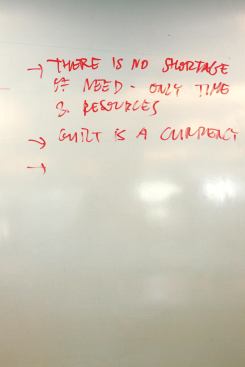 → THERE IS NO SHORTAGE
OF NEED - ONLY TIME
& RESOURCES
→ GUILT IS A CURRENCY
→